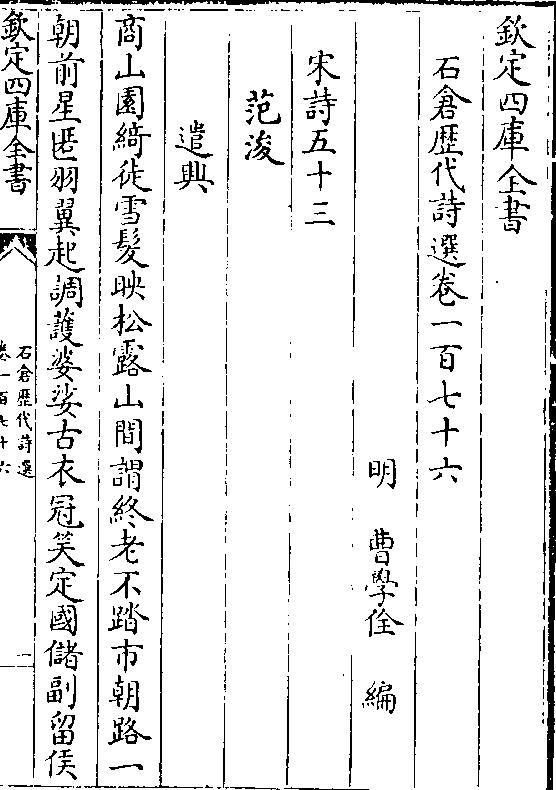 欽定四庫全書
石倉歴代詩選卷一百七十六
明 曹學佺 編
宋詩五十三
范浚
遣興
商山園綺徒雪髮映松露山間謂終老不踏市朝路一
朝前星匿羽翼起調護婆娑古衣冠笑定國儲副留侯
欽定四庫全書
石倉歴代詩選
卷一百七十六
一